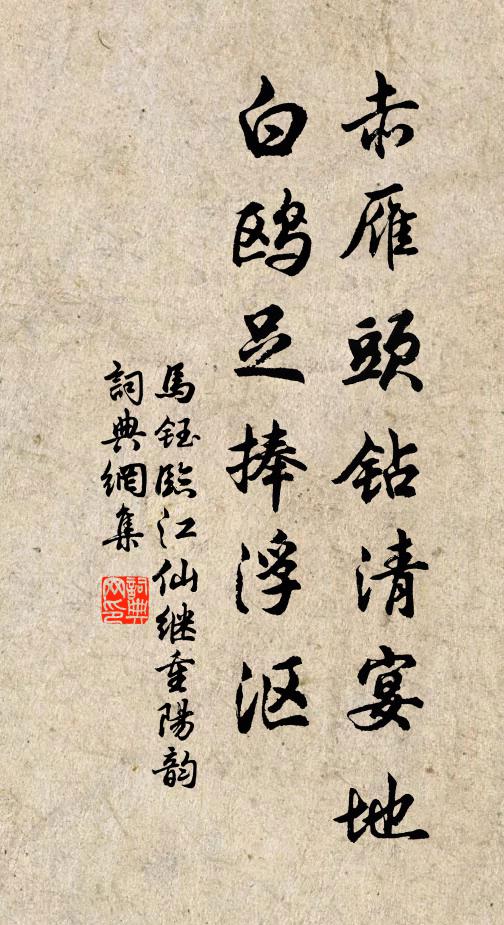 赤雁頭钻清宴地
白鸥足捧浮沤
馬钰臨江仙继重陽韵
詞典網集
詞典网印